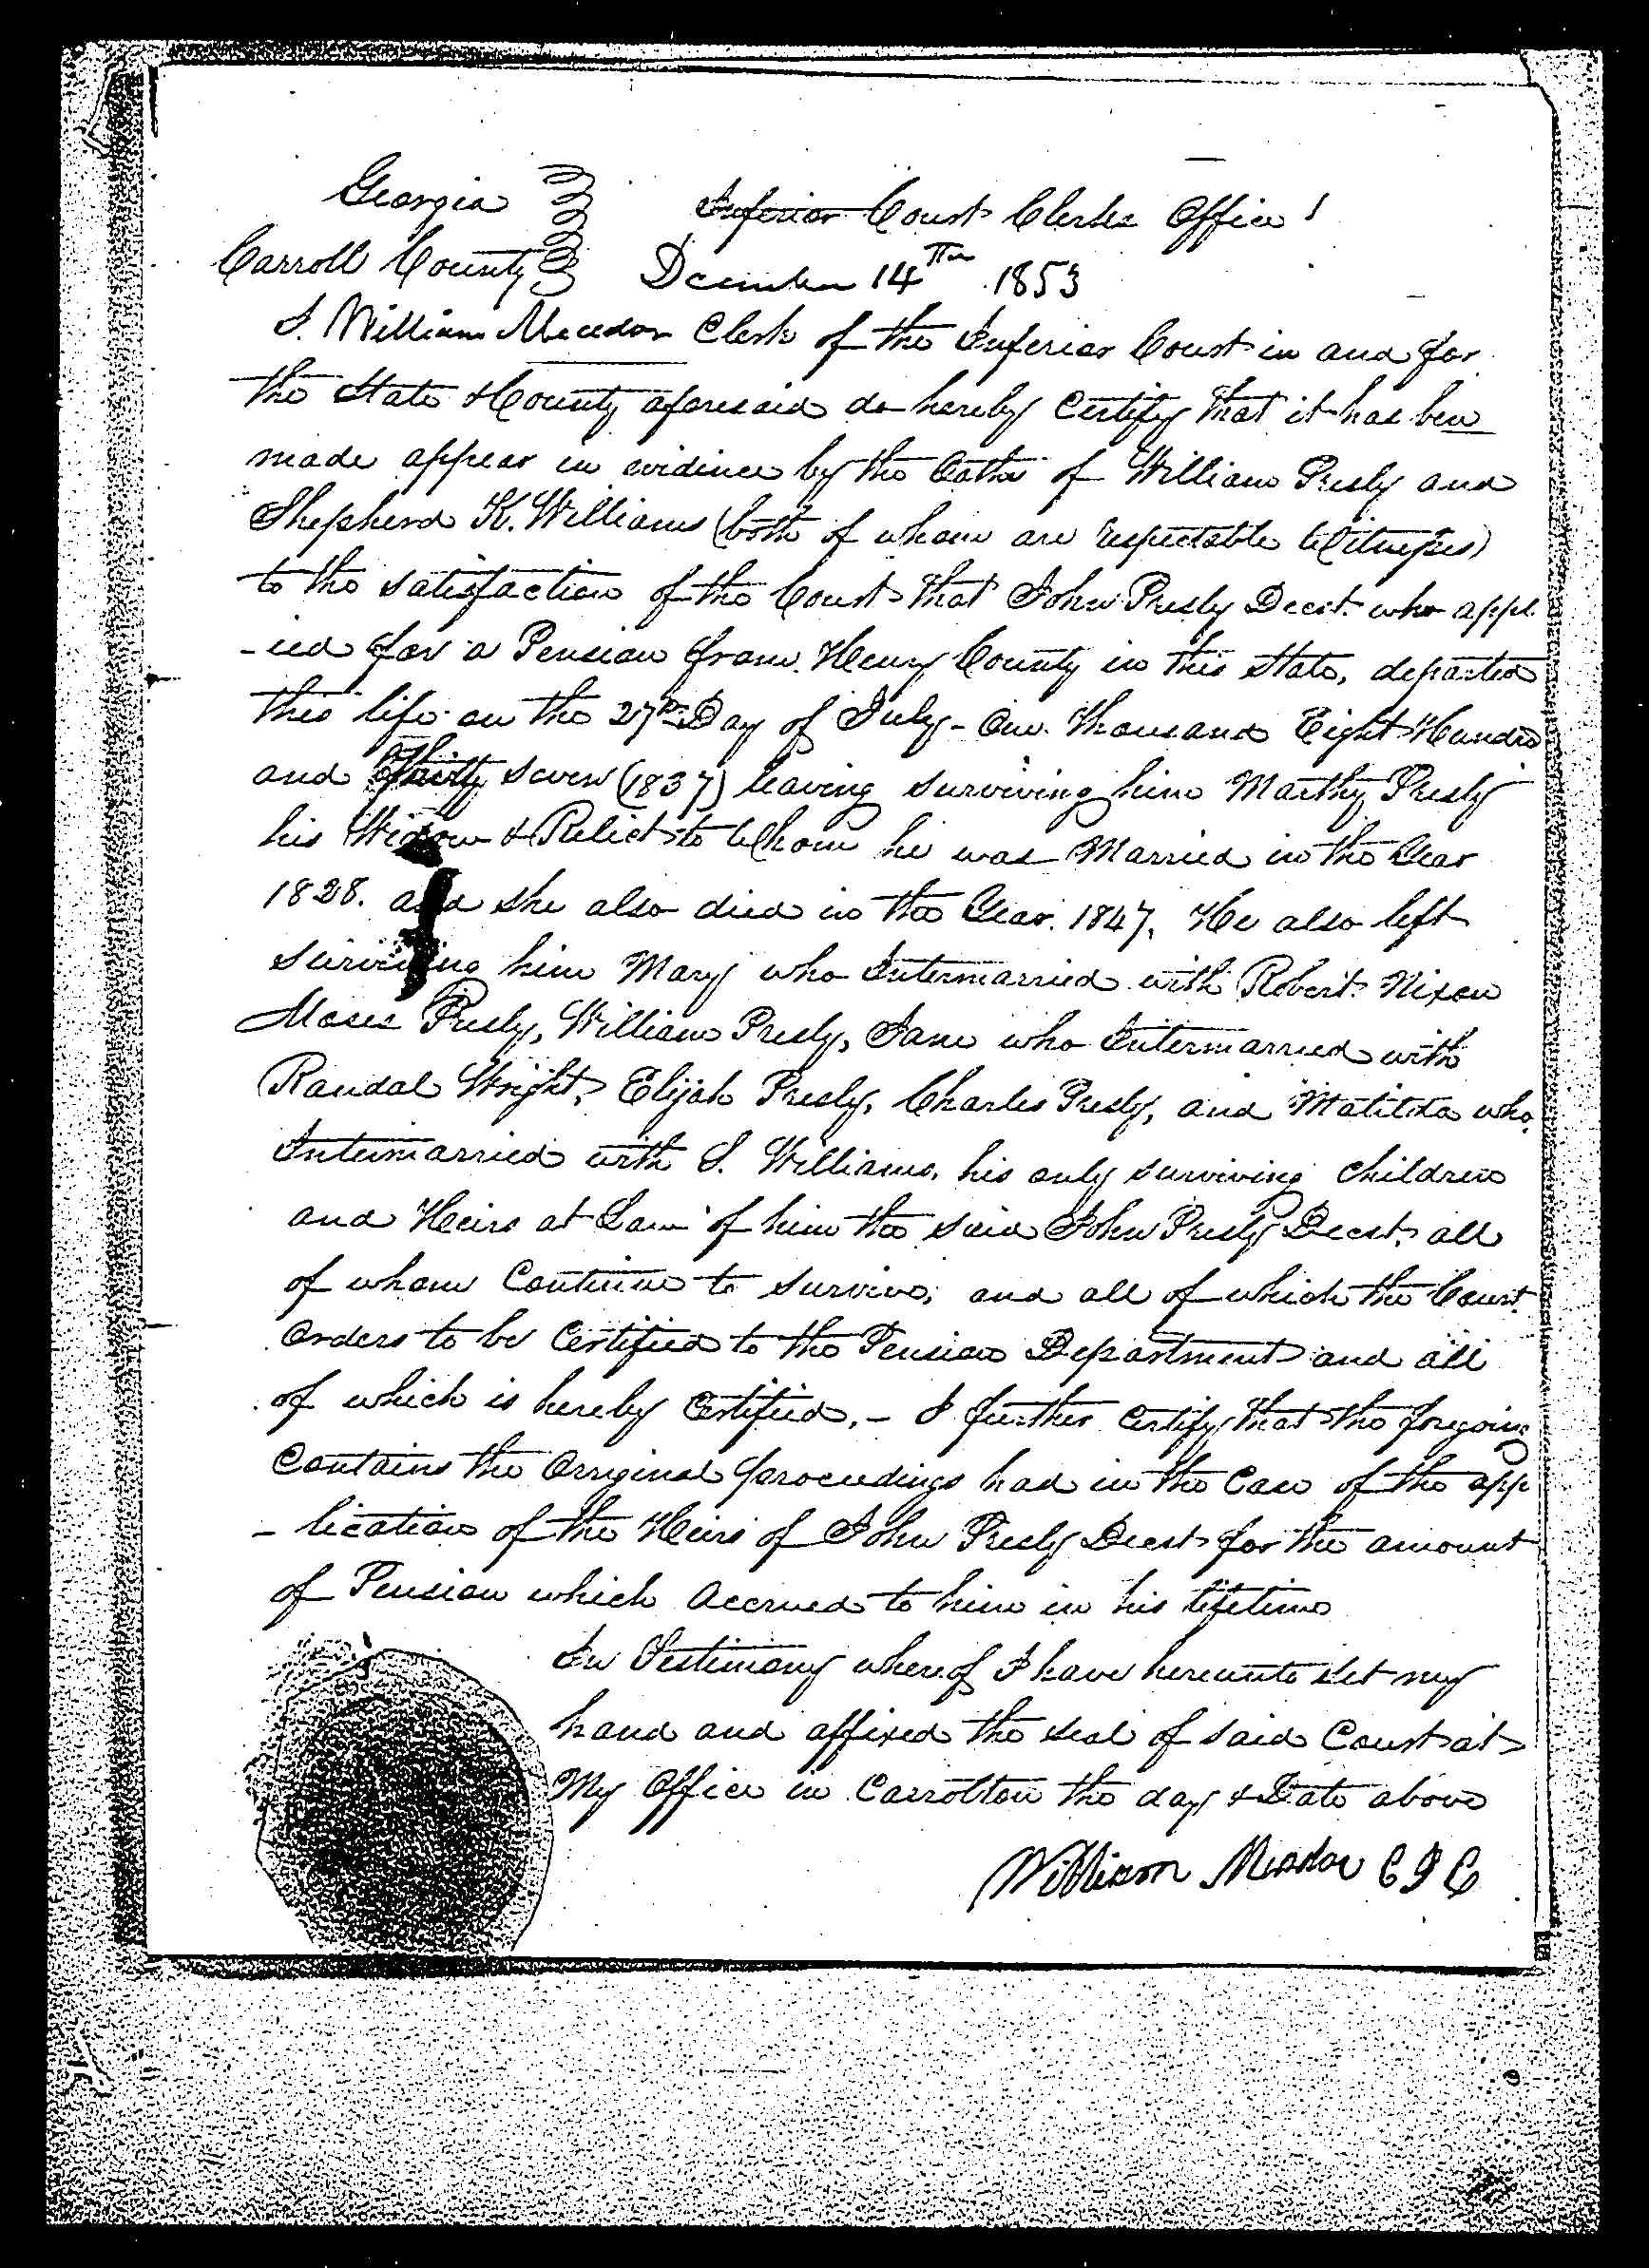 Georgia Inferior Court Clerks Office
Carroll County December 14th 1853
I. William Meador Clerk of the Inferior Court in and for
the State & County aforesaid do hereby Certify that it has ben
made appear in evidence by the Oaths of William Presly and
Shepherd K. Williams (both of whom are respectable Witnesses)
to the satisfaction of the Court that John Presly Decst. who appl
-ied for a Pension from Henry County in this State, departed
this life on the 27th Day of July - One Thousand Eight Hundred
and thirty seven (1837) leaving surviving him Marthy Presly
his Widow & Relict to Whom he was Married in the Year
1828. and she also died in the Year. 1847. He also left
surviving him Mary who Intermarried with Robert Nixon
Moses Presly, William Presly, Jane who Intermarried with
Randal Wright, Elijah Presly, Charles Presly, and Matilda who
Intermarried with S. Williams, his only surviving children
and Heirs at Law of him the said John Presly Decst. all
of whom Continue to survive, and all of which the Court
Orders to be Certified to the Pension Department and all
of which is hereby Certified. - I further Certify that the foregoing
Contains the Orriginal proceedings had in the Case of the app
- lication of the Heirs of John Presly Decst for the amount
of Pension which Accrued to him in his lifetime
In Testimony whereof I have hereunto set my
hand and affixed the seal of said Court at
My Office in Carrolton the day & Date above
William Meador C I C